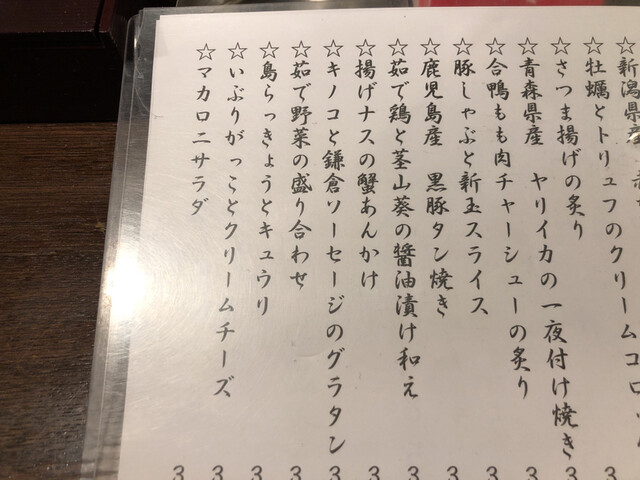 ☆新潟県産
☆牡蠣とトリュフのクリームコロッ
☆さつま揚げの炙り
☆青森県産 ヤリイカの一夜付け焼き
☆合鴨もも肉チャーシューの炙り
☆豚しゃぶと新玉スライス
☆鹿児島産 黒豚タン焼き
☆茹で鶏と茎山葵の醤油漬け和え
☆揚げナスの蟹あんかけ
☆キノコと鎌倉ソーセージのグラタン
☆茹で野菜の盛り合わせ
☆島らっきょうとキュウリ
☆いぶりがっことクリームチーズ
☆マカロニサラダ
3 3 3 3 3 3 3 3 3 3 3 3